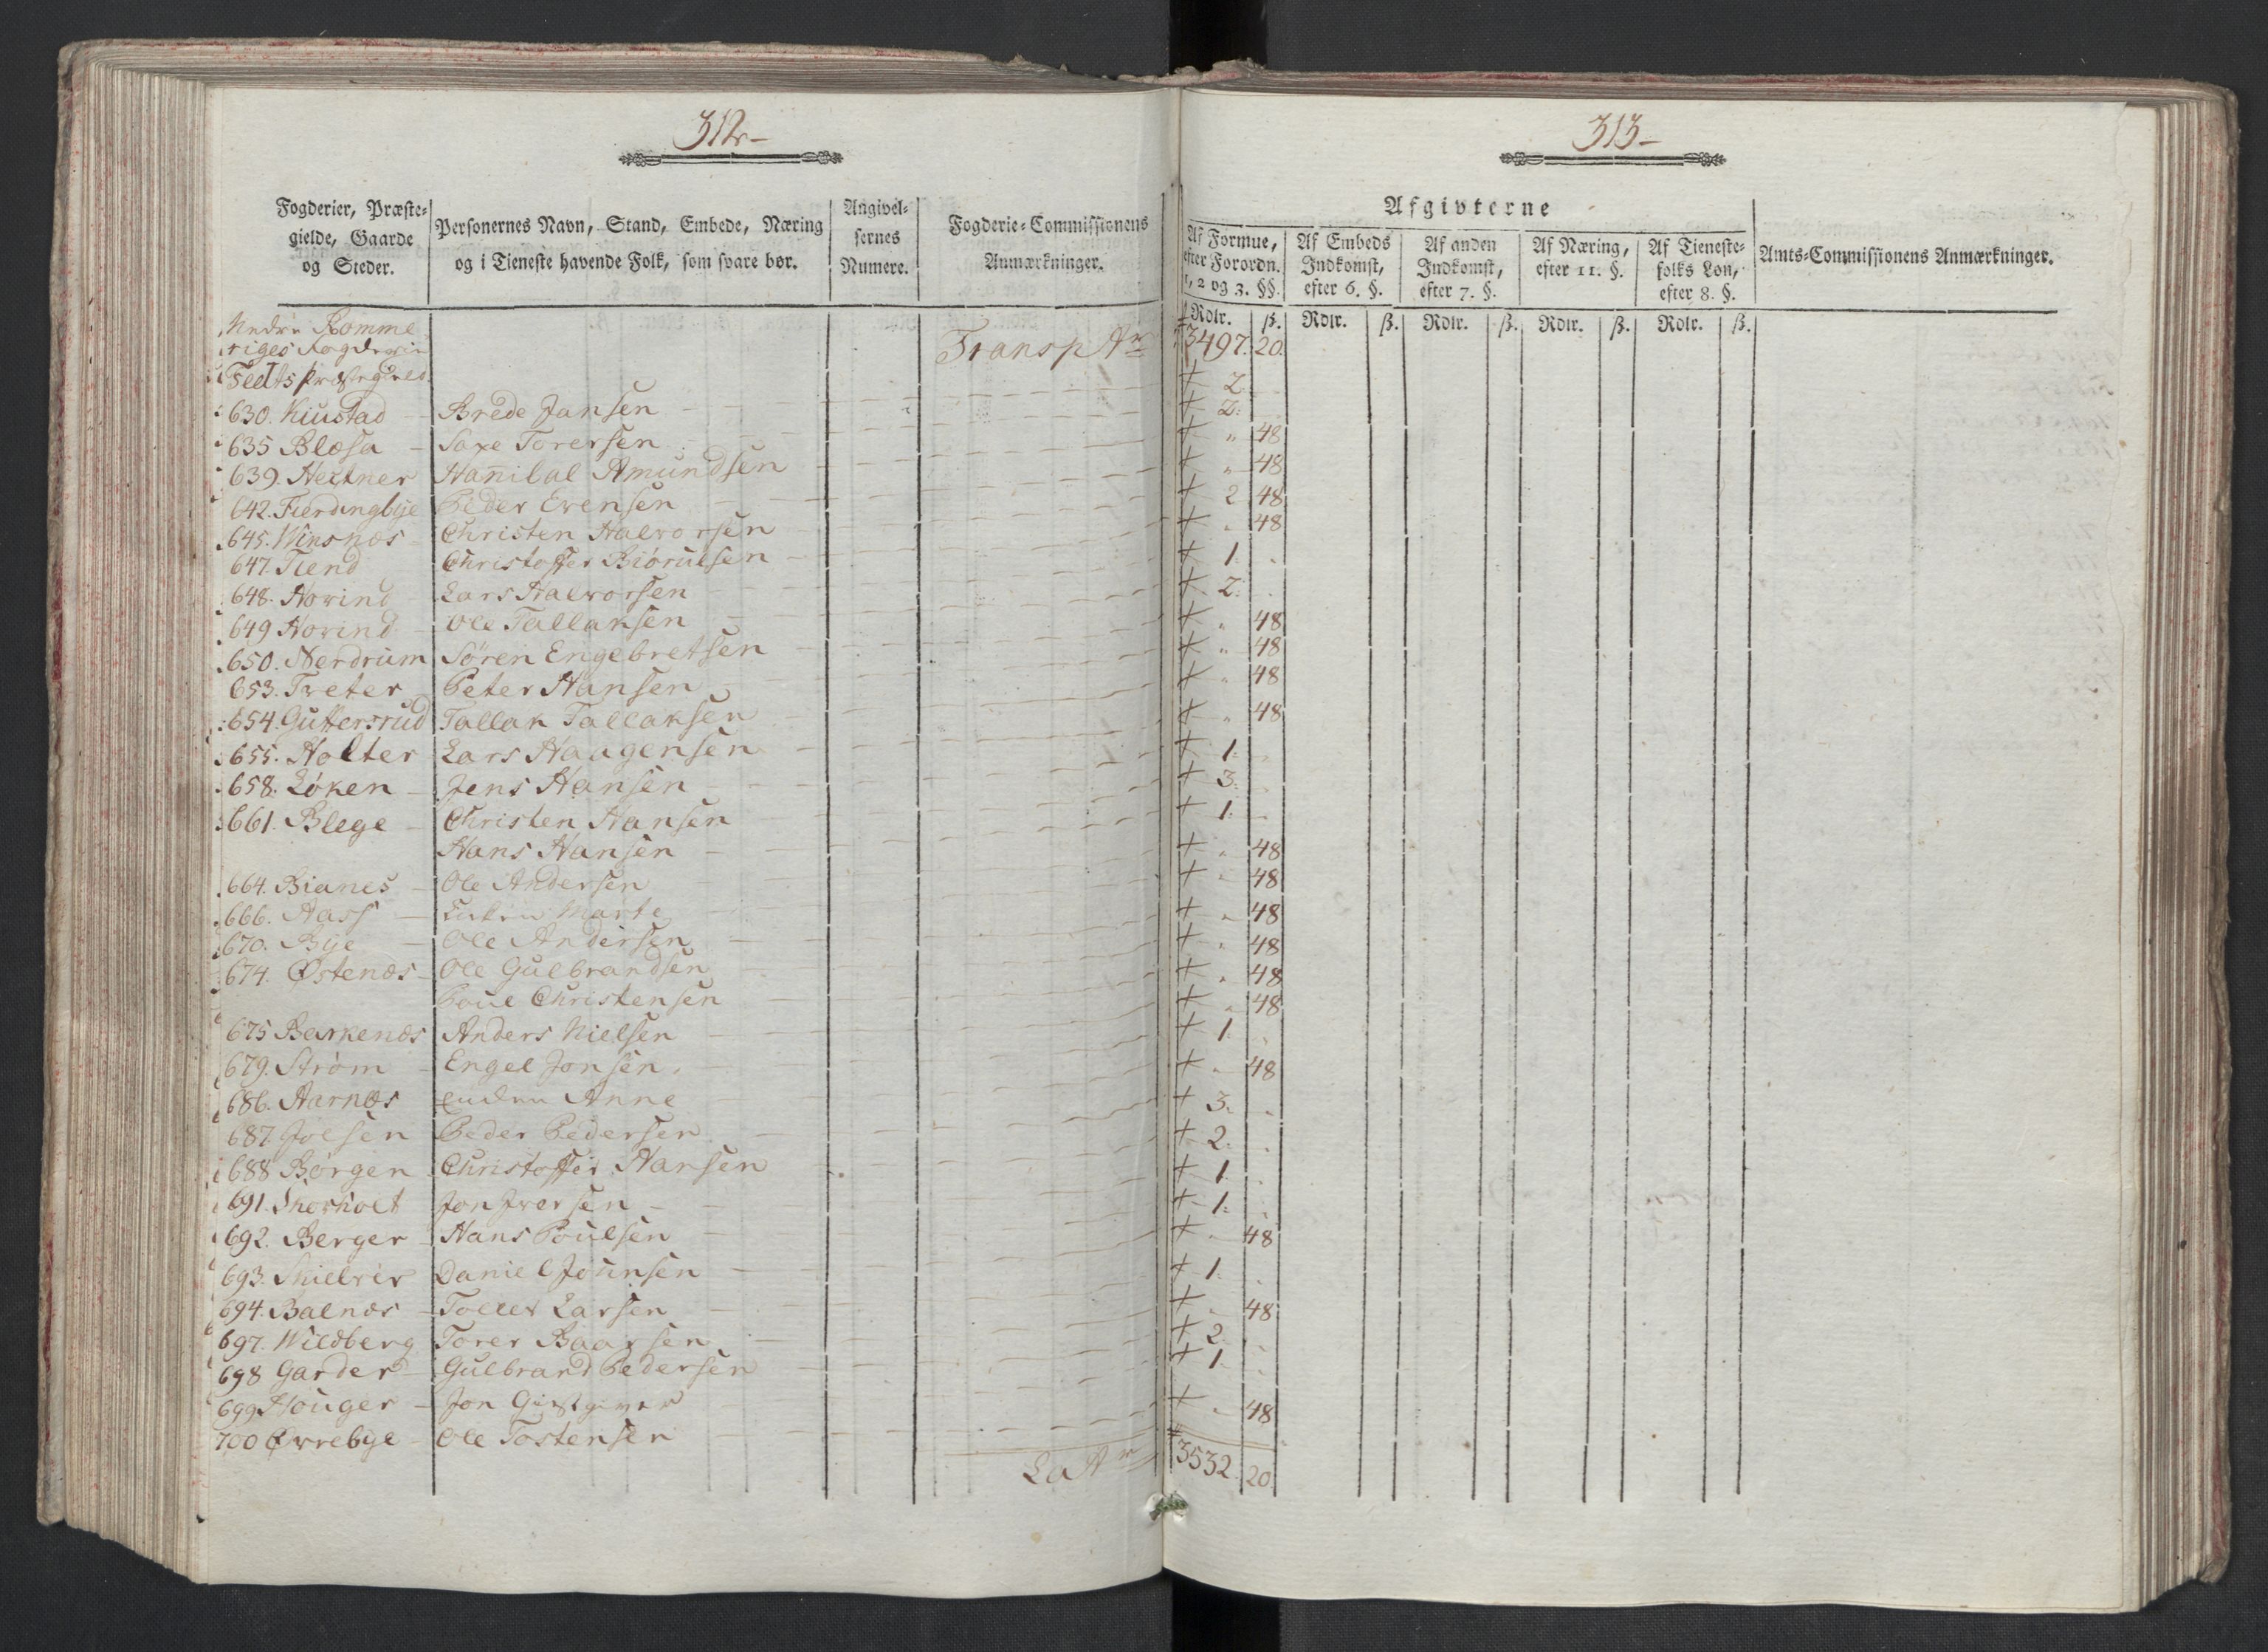 312-
Fogderier, Præste-
gielde, Gaarde
og Steder.
Personernes Navn, Stand, Embede, Næring
og i Tieneste havende Folk, som svare bør.
Angivel-
sernes
Numere.
Fogderie-Commissionens
Anmærkninger.
Nedre Romme
riges Fogderie
Feedts Præstegield
Transp Ar
630. Kiustad Brede Jansen
635 Blæsa Saxe Torersen
639. Hectner Hanibal Amundsen
642. Fierdingbye Peder Evensen
645. Winsnæs Christen Halvorsen
647. Tiend Christoffer Biørulsen
648. Hovind Lars Halvorsen
649 Hovind Ole Tallaksen
650. Nerdrum Sören Engebretsen
653. Treter Peter Hansen
654. Guttersrud Tallak Tallaksen
655. Holter Lars Haagensen
658. Løken Jens Hansen
661. Blege Christen Hansen
Hans Hansen
664. Bianes Ole Andersen
666. Aass Enken Marte
670. Bye Ole Andersen
674. Østenæs Ole Gulbrandsen
Poul Christensen
675 Barkenæs Anders Nielsen
679. Strøm Engel Jonsen
686. Aarnæs Enken Anne
687. Joesen Peder Pedersen
688 Børgen Christoffer Hansen
691. Skorholt Jon Iversen
692. Berger Hans Poulsen
693. Skielver Daniel Johnsen
694. Balnæs Tollef Larsen
697. Wildberg Torer Baarsen
698 Garder Gulbrand Pedersen
699 Houger Jon Giestgiver
700 Ørrebye Ole Tostensen
La Ar
313-
Afgivterne
Af Formue,
efter Forordn.
1, 2 og 3. §§.
Af Embeds
Indkomst,
efter 6. §.
Af anden
Indkomst,
efter 7. §.
Af Næring,
efter 11. §.
Af Tieneste-
folks Løn,
efter 8. §.
Amts-Commissionens Anmærkninger.
Rdlr. ß. Rdlr. ß. Rdlr. ß. Rdlr. ß. Rdlr. ß.
3497. 20.
+ 2.
+ 2.
+ " 48
+ " 48
+ 2 48
+ " 48
+ 1.
+ 2.
+ " 48
+ " 48
+ " 48
+ " 48
+ 1.
+ 3.
+ 1.
+ " 48
+ " 48
+ " 48
+ " 48
+ " 48
+ " 48
+ 1.
+ " 48
+ 3.
+ 2.
+ 1.
+ 1.
+ " 48
+ 1.
+ " 48
+ 2.
+ 1.
+ " 48
3532. 20.